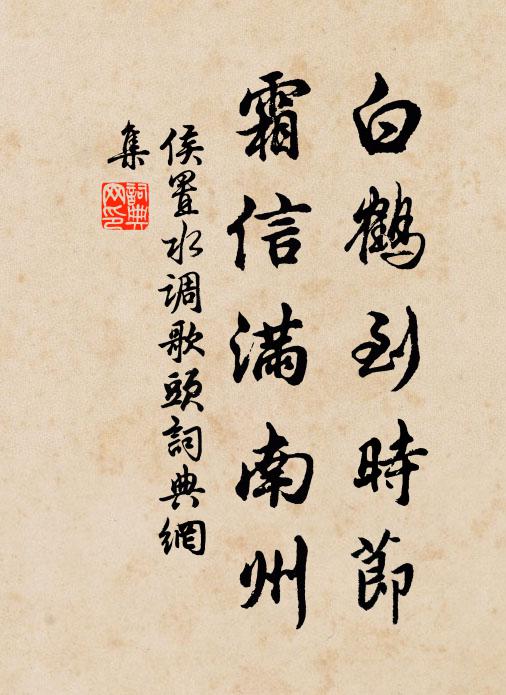 白鶴到時節
霜信滿南州
侯置水调歌頭詞典網
集
詞典
网印